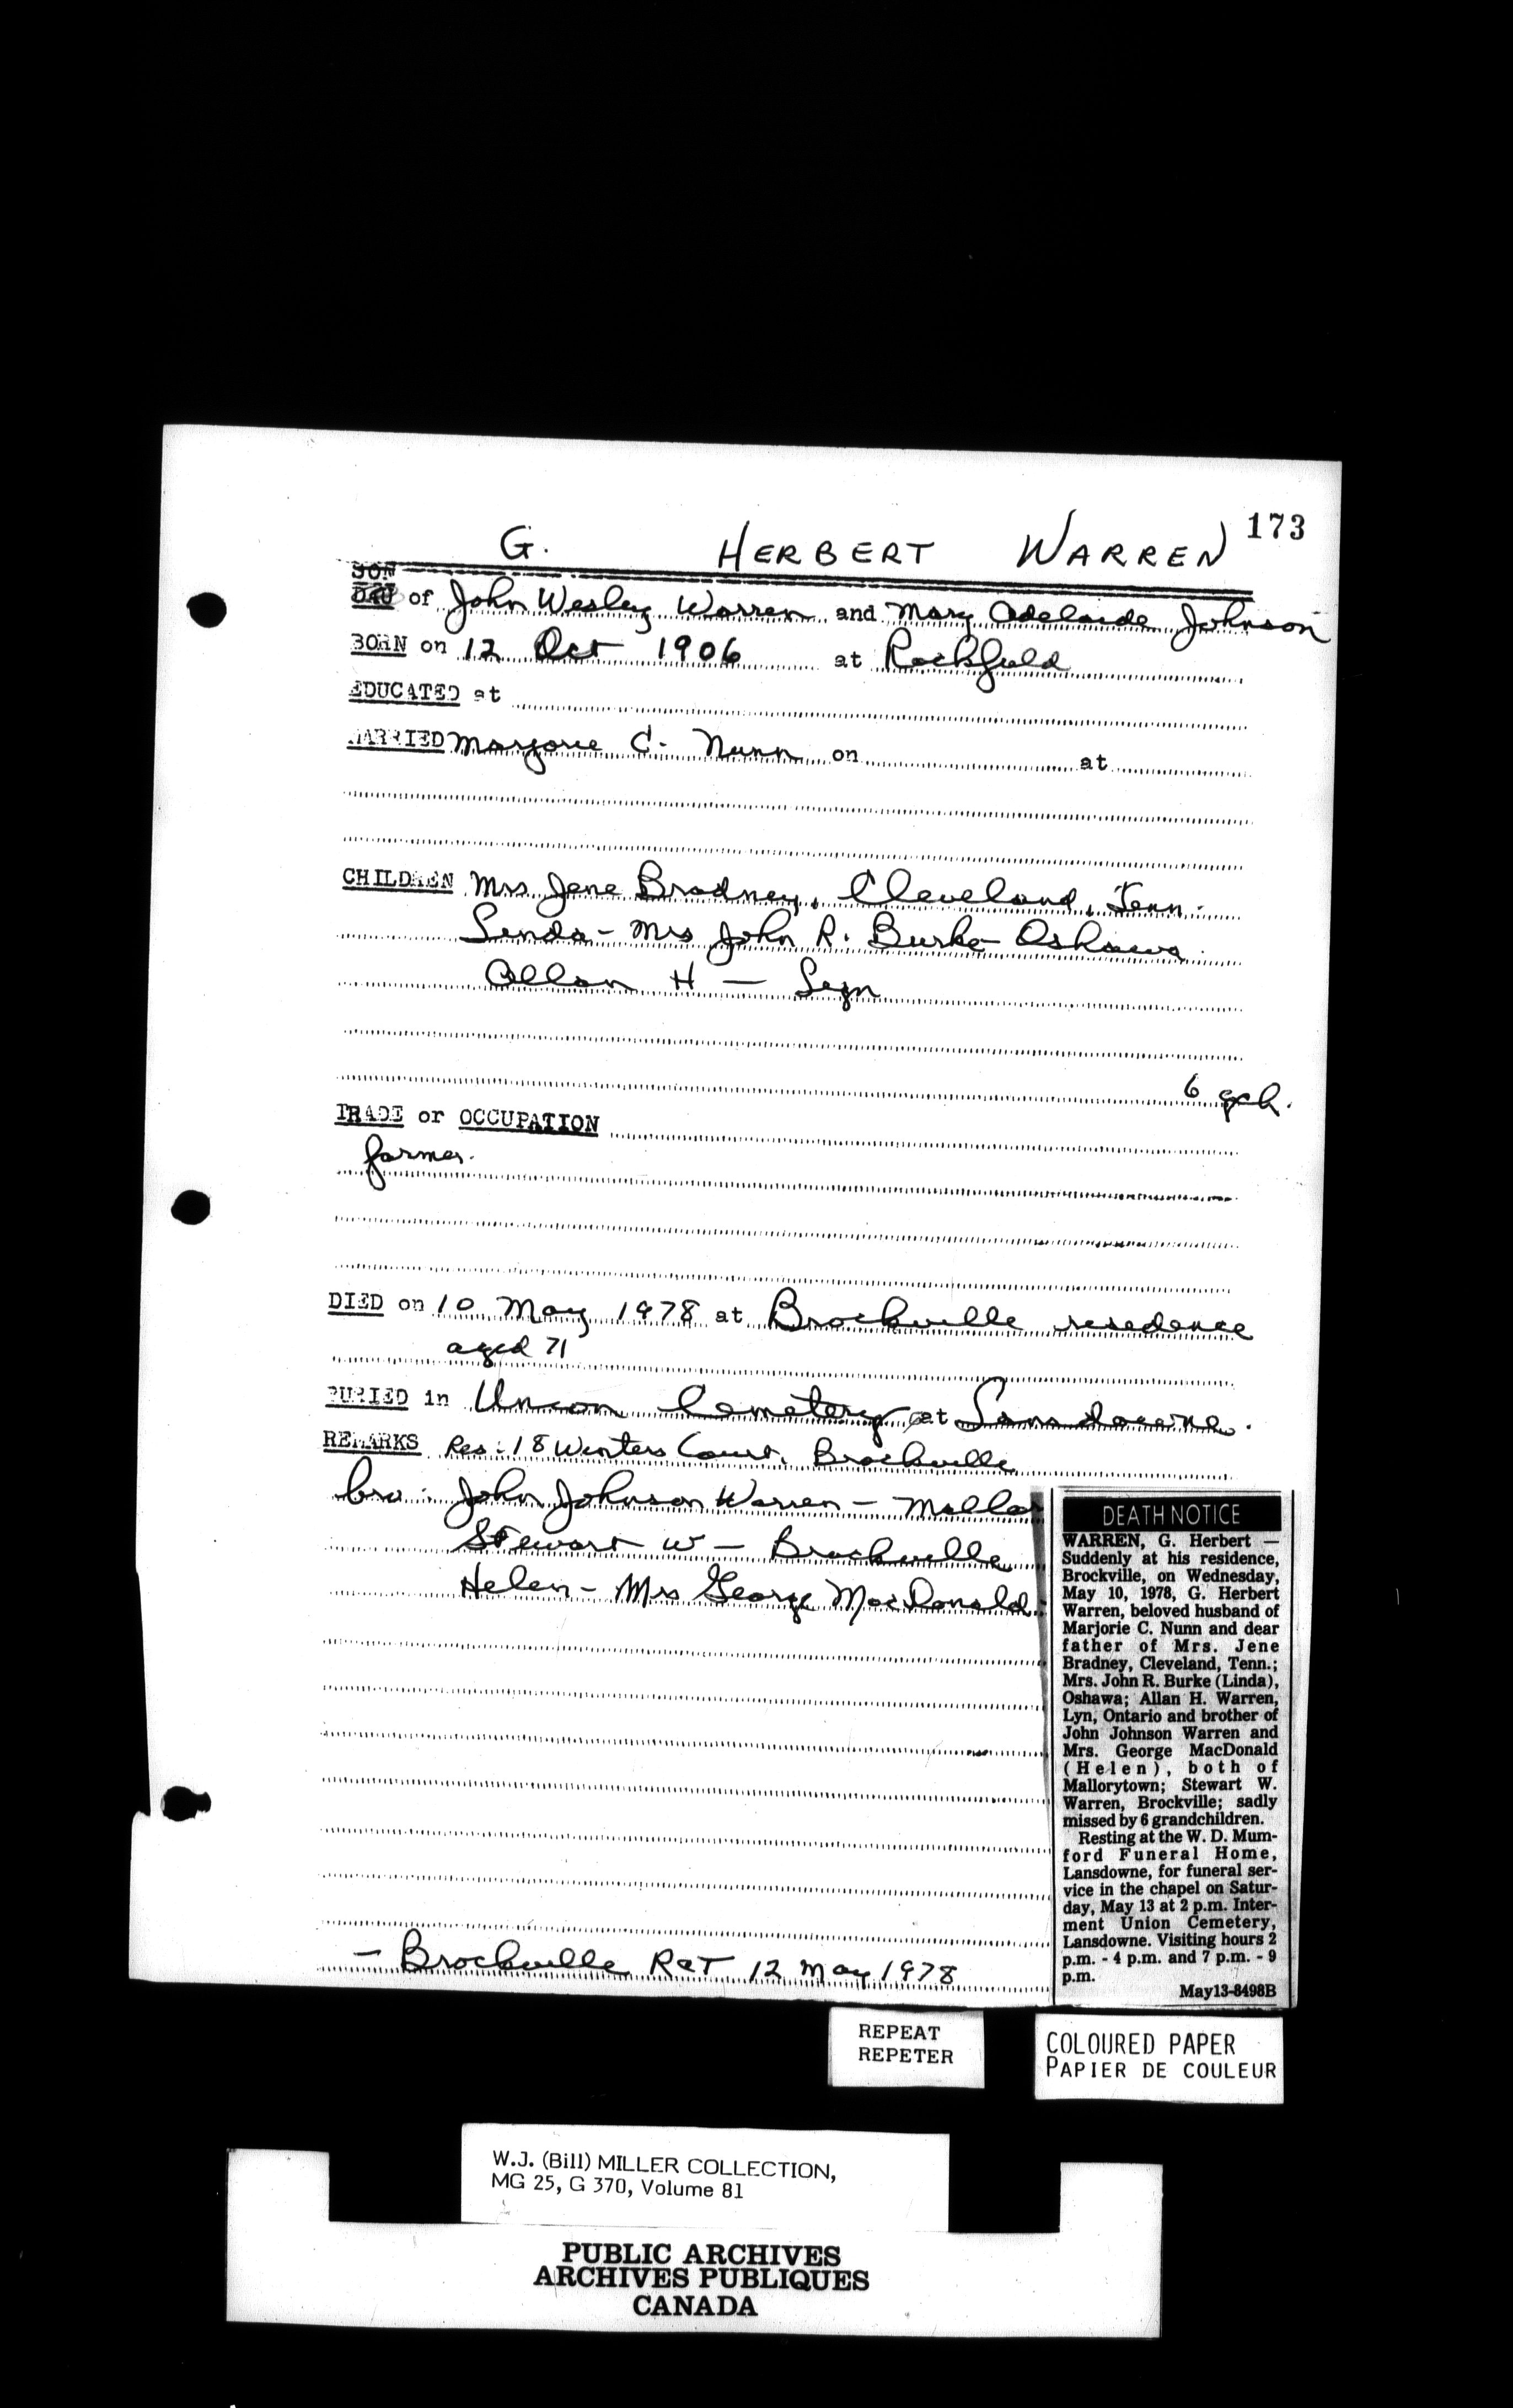 173
G. HERBERT WARREN
SON
DAU of John Wesley Warren and Mary Adelaide Johnson
BORN on 12 Oct 1906 at Rockfield
EDUCATED at
MARRIED Marjorie C. Nunn on at
CHILDREN Mrs Jene Bradney, Cleveland, Tenn.
Linda - Mrs John R. Burke Oshawa
Allan H — Lyn
6 gch.
TRADE or OCCUPATION
farmer.
DIED on 10 May 1978 at Brockville residence
aged 71
BURIED in Union Cemetery at Lansdowne.
REMARKS Res: 18 Winters Court, Brockville
bro: John Johnson Warren - Mallor
Stewart W - Brockville
Helen - Mrs George MacDonald
- Brockville R&T 12 May 1978
DEATH NOTICE
WARREN, G. Herbert —
Suddenly at his residence,
Brockville, on Wednesday,
May 10, 1978, G. Herbert
Warren, beloved husband of
Marjorie C. Nunn and dear
father of Mrs. Jene
Bradney, Cleveland, Tenn.;
Mrs. John R. Burke (Linda),
Oshawa; Allan H. Warren,
Lyn, Ontario and brother of
John Johnson Warren and
Mrs. George MacDonald
(Helen), both of
Mallorytown; Stewart W.
Warren, Brockville; sadly
missed by 6 grandchildren.
Resting at the W. D. Mum-
ford Funeral Home,
Lansdowne, for funeral ser-
vice in the chapel on Satur-
day, May 13 at 2 p.m. Inter-
ment Union Cemetery,
Lansdowne. Visiting hours 2
p.m. - 4 p.m. and 7 p.m. - 9
p.m.
May13-8498B
REPEAT
REPETER
COLOURED PAPER
PAPIER DE COULEUR
W.J. (Bill) MILLER COLLECTION,
MG 25, G 370, Volume 81
PUBLIC ARCHIVES
ARCHIVES PUBLIQUES
CANADA